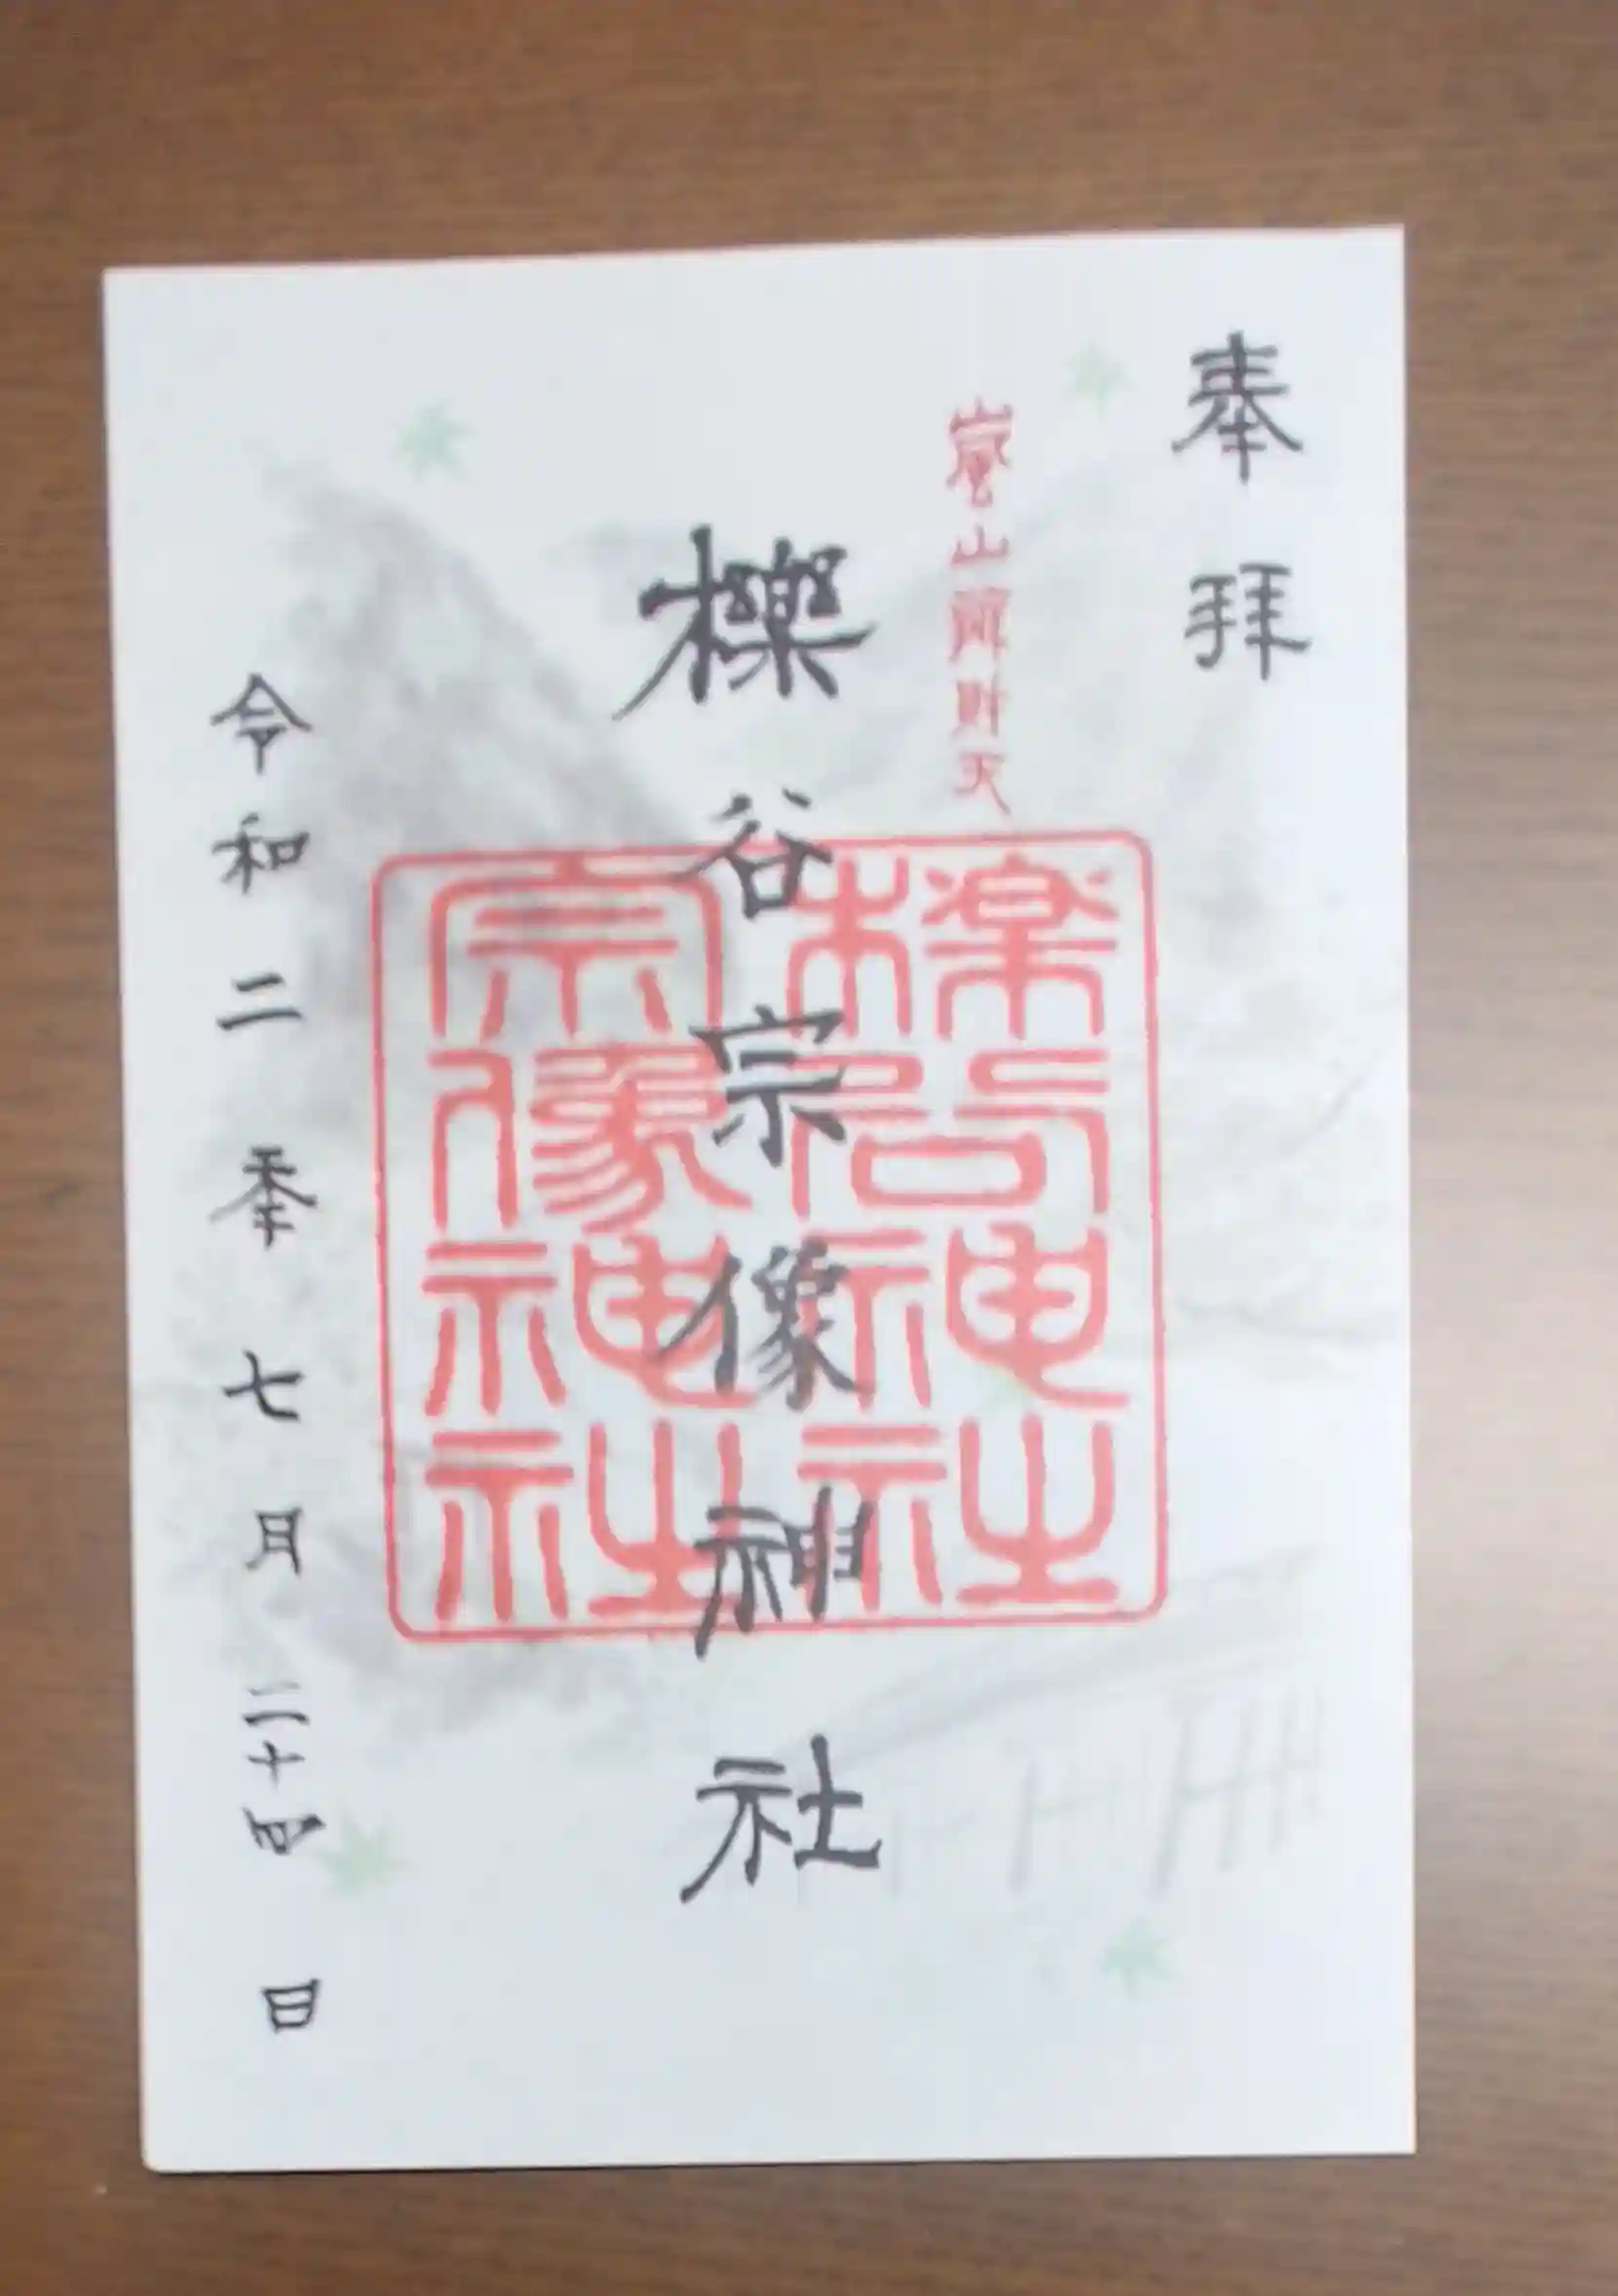 奉拝
嵐山辨財天
櫟谷宗像神社
櫟谷神社
宗像神社
令和二秊七月二十四日